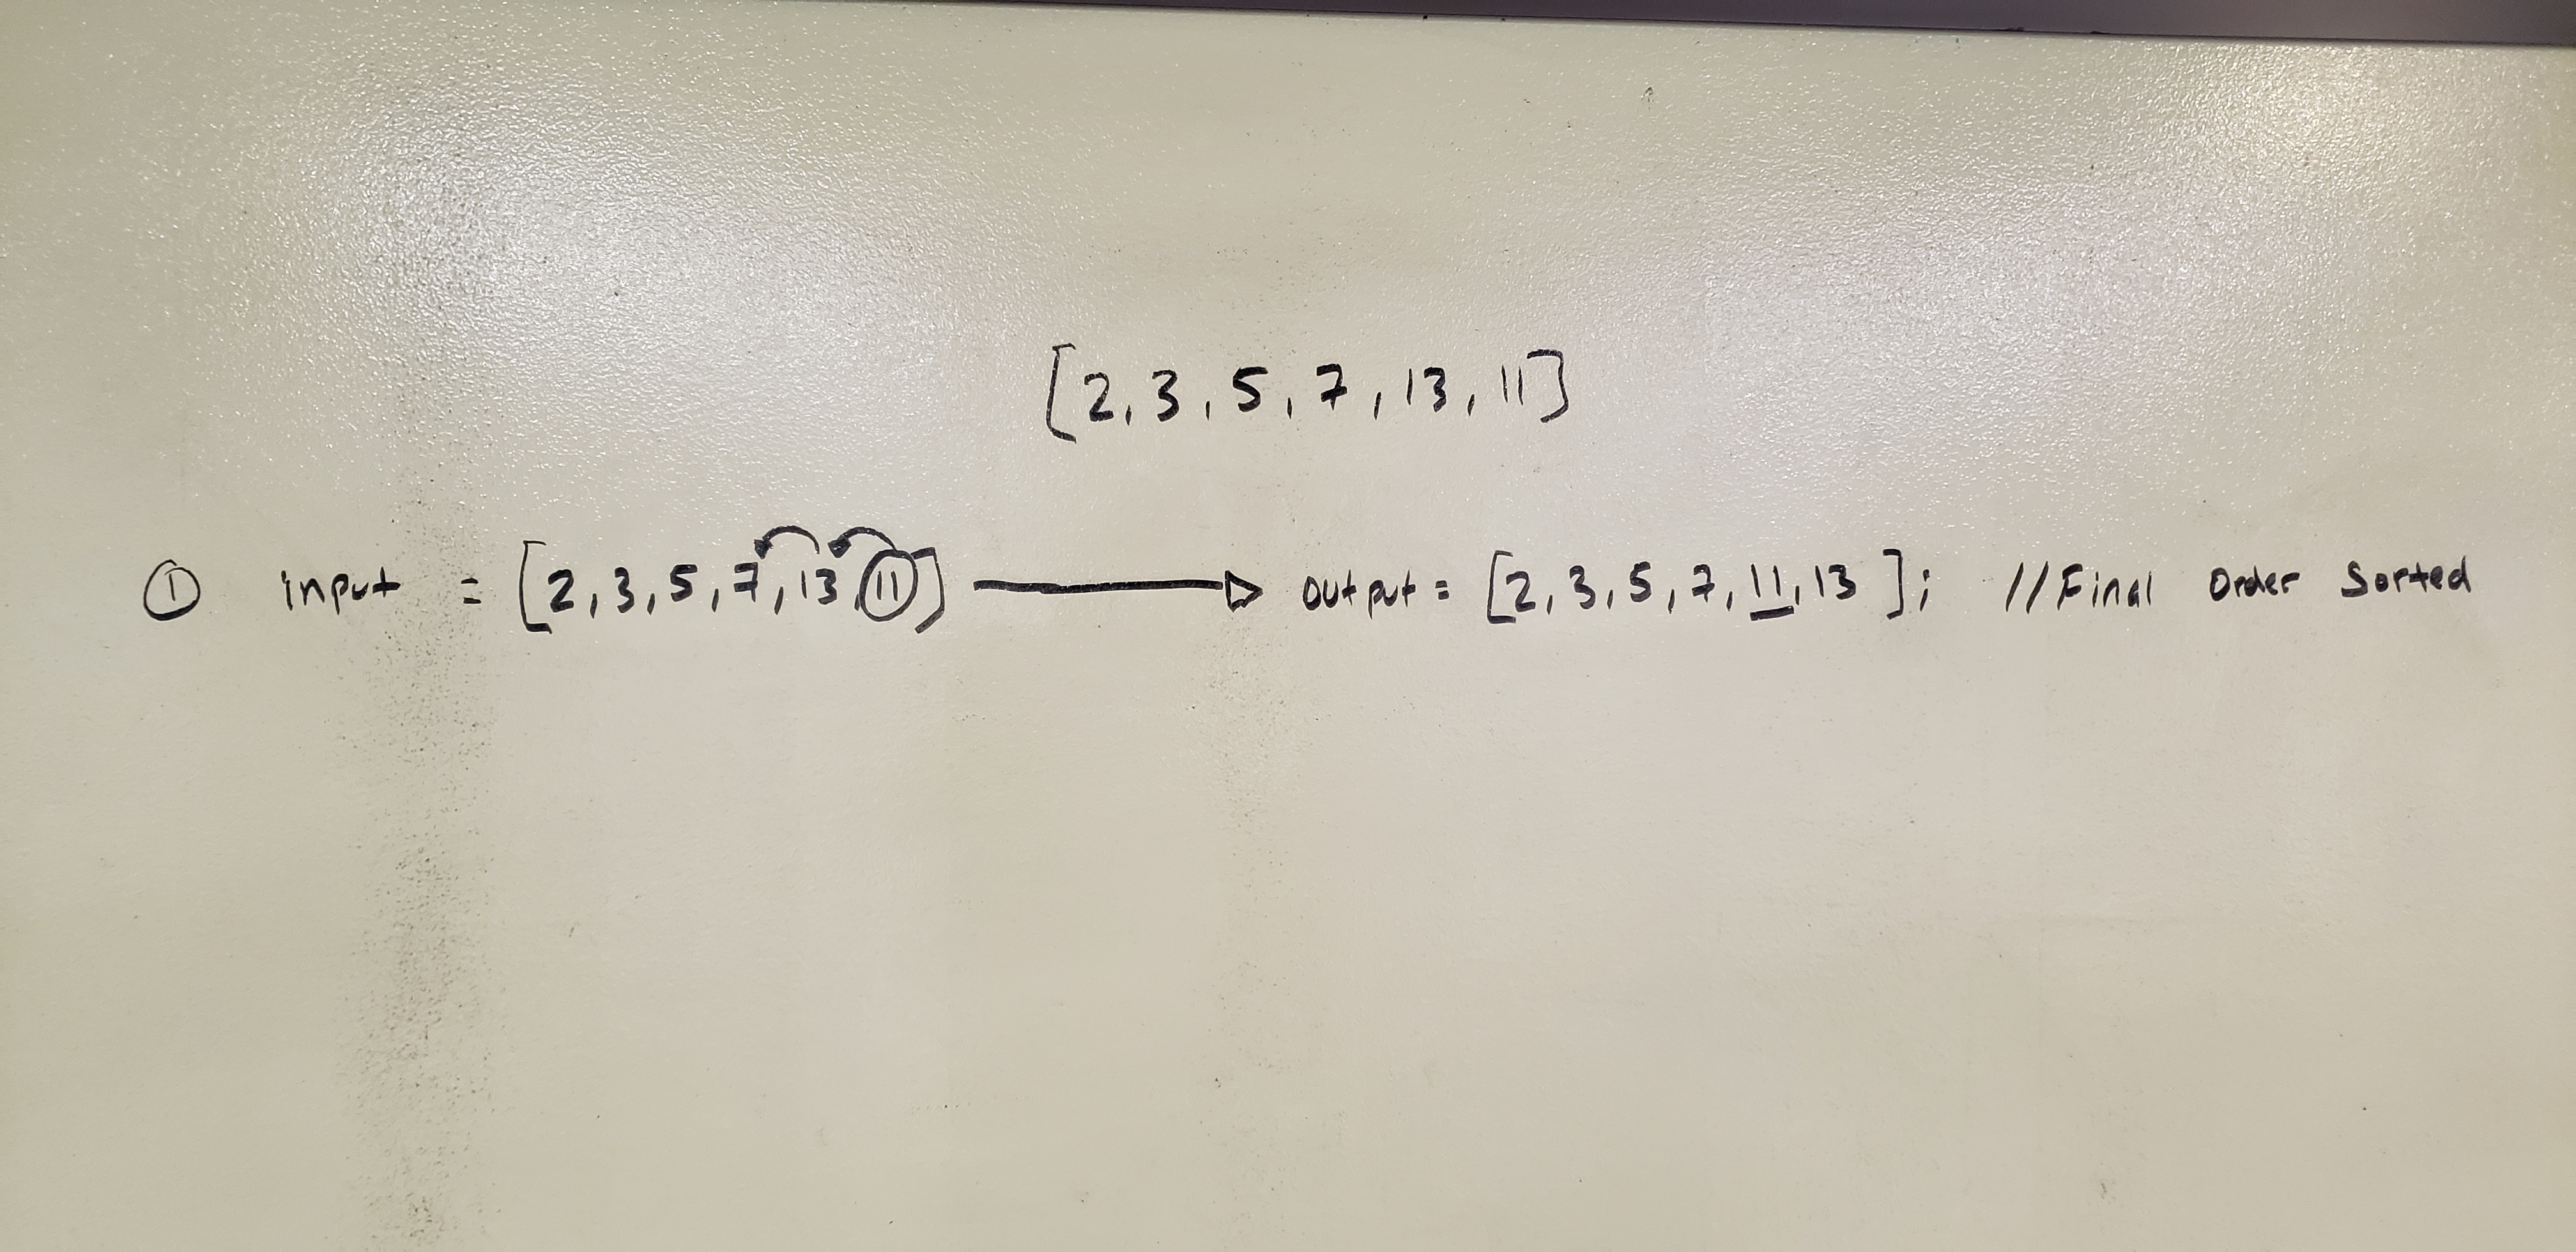 [2, 3, 5, 7, 13, 11]
① input = [2, 3, 5, 7, 13, 11] → output = [2, 3, 5, 7, 11, 13 ]; //Final Order Sorted